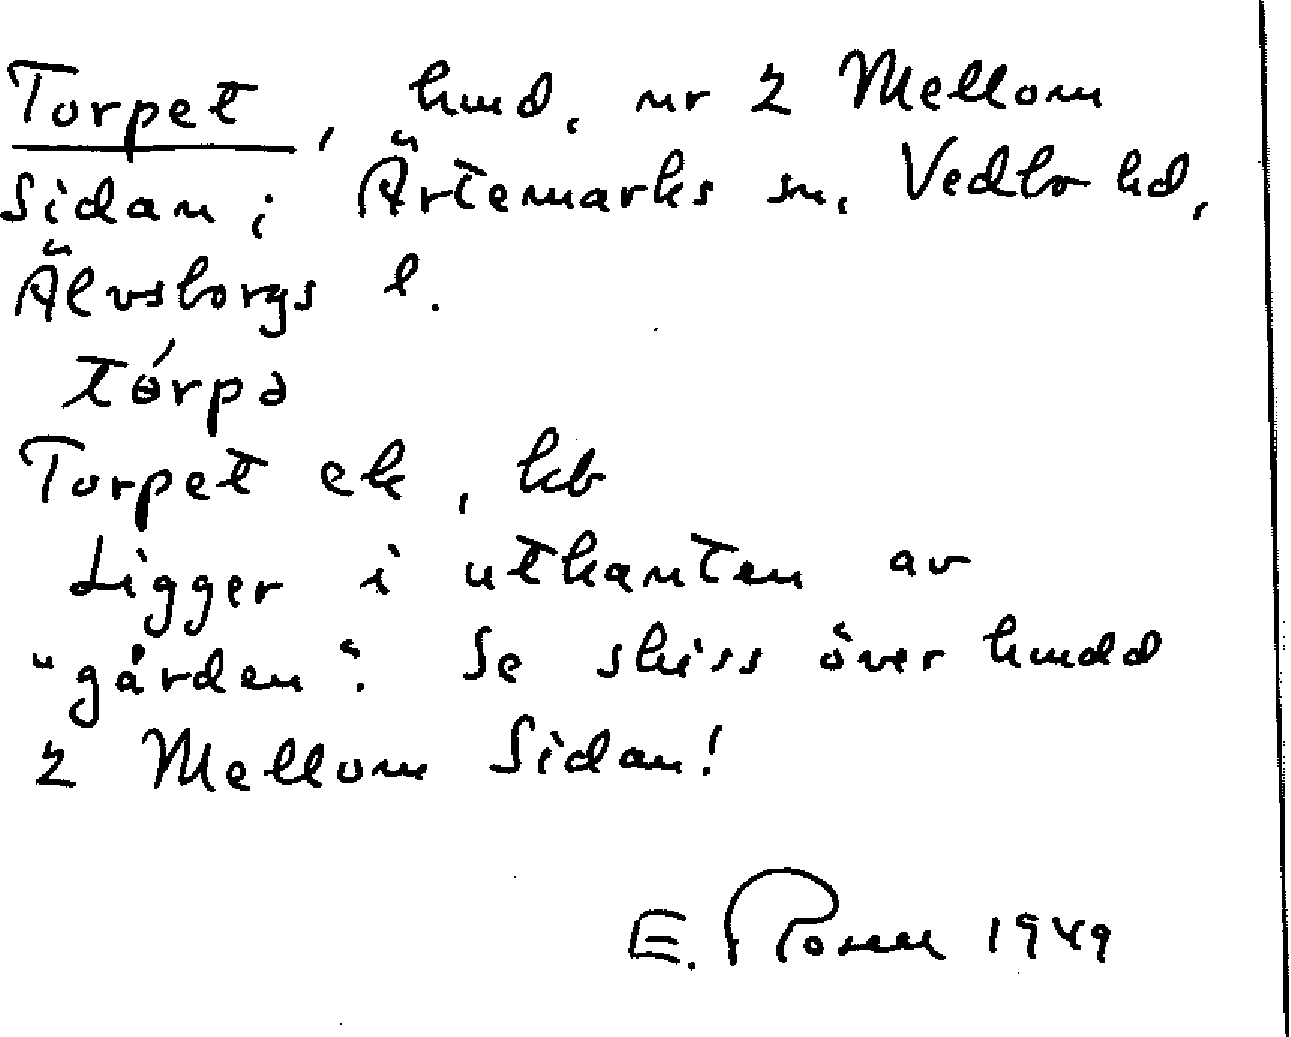 Torpet, hmd, nr 2 Mellom
Sidan i Ärtemarks sn, Vedbo hd,
Älvsborgs l.
tɵ́rpə
Torpet ek, kb
Ligger i utkanten av
"gården". Se skiss över hmdd
2 Mellom Sidan!
E. Rosell 1949